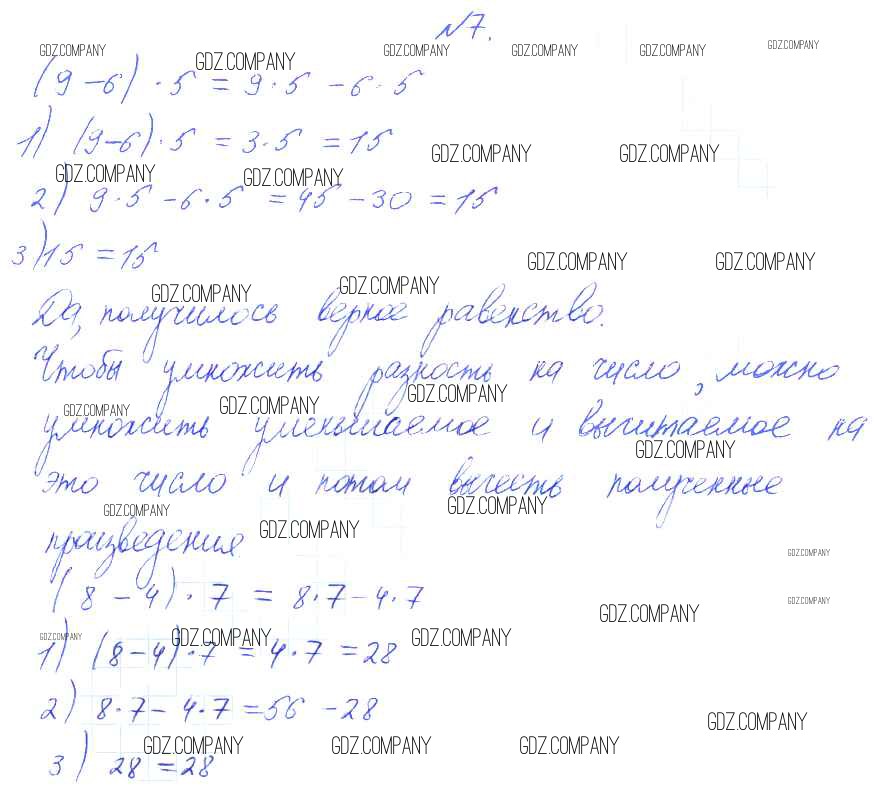 №7.
GDZ.COMPANY GDZ.COMPANY GDZ.COMPANY GDZ.COMPANY GDZ.COMPANY GDZ.COMPANY
(9-6) · 5 = 9·5 - 6·5
1) (9-6)·5 = 3·5 = 15
GDZ.COMPANY GDZ.COMPANY
GDZ.COMPANY GDZ.COMPANY
2) 9·5 - 6·5 = 45 - 30 = 15
3) 15 = 15
GDZ.COMPANY GDZ.COMPANY
GDZ.COMPANY GDZ.COMPANY
Да, получилось верное равенство.
Чтобы умножить разность на число, можно
GDZ.COMPANY GDZ.COMPANY GDZ.COMPANY
умножить уменьшаемое и вычитаемое на
GDZ.COMPANY
это число и потом вычесть полученные
GDZ.COMPANY GDZ.COMPANY
GDZ.COMPANY
произведения
GDZ.COMPANY
(8 - 4) · 7 = 8·7 - 4·7
GDZ.COMPANY GDZ.COMPANY
GDZ.COMPANY GDZ.COMPANY GDZ.COMPANY
1) (8-4)·7 = 4·7 = 28
2) 8·7 - 4·7 = 56 - 28
GDZ.COMPANY
GDZ.COMPANY GDZ.COMPANY GDZ.COMPANY
3) 28 = 28